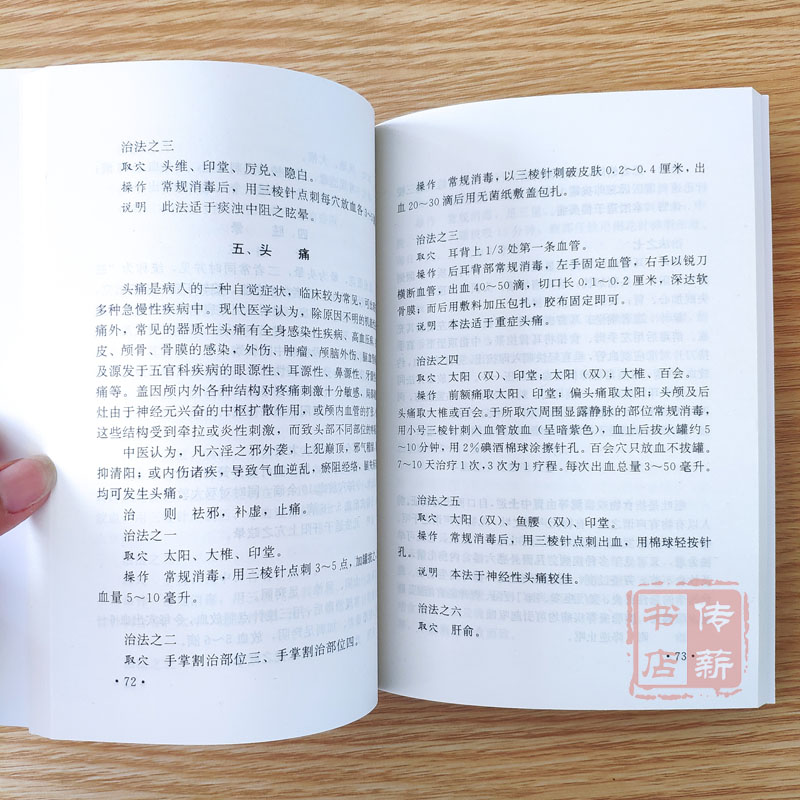 治法之三
取穴　头维、印堂、厉兑、隐白。
操作　常规消毒后，用三棱针点刺每穴放血各3～
说明　此法适于痰浊中阻之眩晕。
五、头　　痛
头痛是病人的一种自觉症状，临床较为常见，可出
多种急慢性疾病中。现代医学认为，除原因不明的
痛外，常见的器质性头痛有全身感染性疾病、高血
皮、颅骨、骨膜的感染，外伤、肿瘤、颅脑外伤、脑血
及源发于五官科疾病的眼源性、耳源性、鼻源性、牙
痛等。盖因颅内外各种结构对疼痛刺激十分敏感，局
灶由于神经元兴奋的中枢扩散作用，或颅内血管的
这些结构受到牵拉或炎性刺激，而致头部不同部位的
中医认为，凡六淫之邪外袭，上犯巅顶，邪气
抑清阳；或内伤诸疾，导致气血逆乱，瘀阻经络，
均可发生头痛。
治　　则　祛邪，补虚，止痛。
治法之一
取穴　太阳、大椎、印堂。
操作　常规消毒，用三棱针点刺3～5点，加罐拔之
血量5～10毫升。
治法之二
取穴　手掌割治部位三、手掌割治部位四。
·72·
操作　常规消毒，以三棱针刺破皮肤0.2～0.4厘米，出
血20～30滴后用无菌纸敷盖包扎。
治法之三
取穴　耳背上1/3处第一条血管。
操作　后耳背部常规消毒，左手固定血管，右手以锐刀
横断血管，出血40～50滴，切口长0.1～0.2厘米，深达软
骨膜；而后用敷料加压包扎，胶布固定即可。
说明　本法适于重症头痛。
治法之四
取穴　太阳（双）、印堂；太阳（双）；大椎、百会。
操作　前额痛取太阳、印堂；偏头痛取太阳；头颅及后
头痛取大椎或百会。于所取穴周围显露静脉的部位常规消毒，
用小号三棱针刺入血管放血（呈暗紫色），血止后拔火罐约5
～10分钟，用2%碘酒棉球涂擦针孔。百会穴只放血不拔罐。
7～10天治疗1次，3次为1疗程。每次出血总量3～50毫升。
治法之五
取穴　太阳（双）、鱼腰（双）、印堂。
操作　常规消毒后，用三棱针点刺出血，用棉球轻按针
孔。
说明　本法于神经性头痛较佳。
治法之六
取穴　肝俞。
·73·
传薪
书店